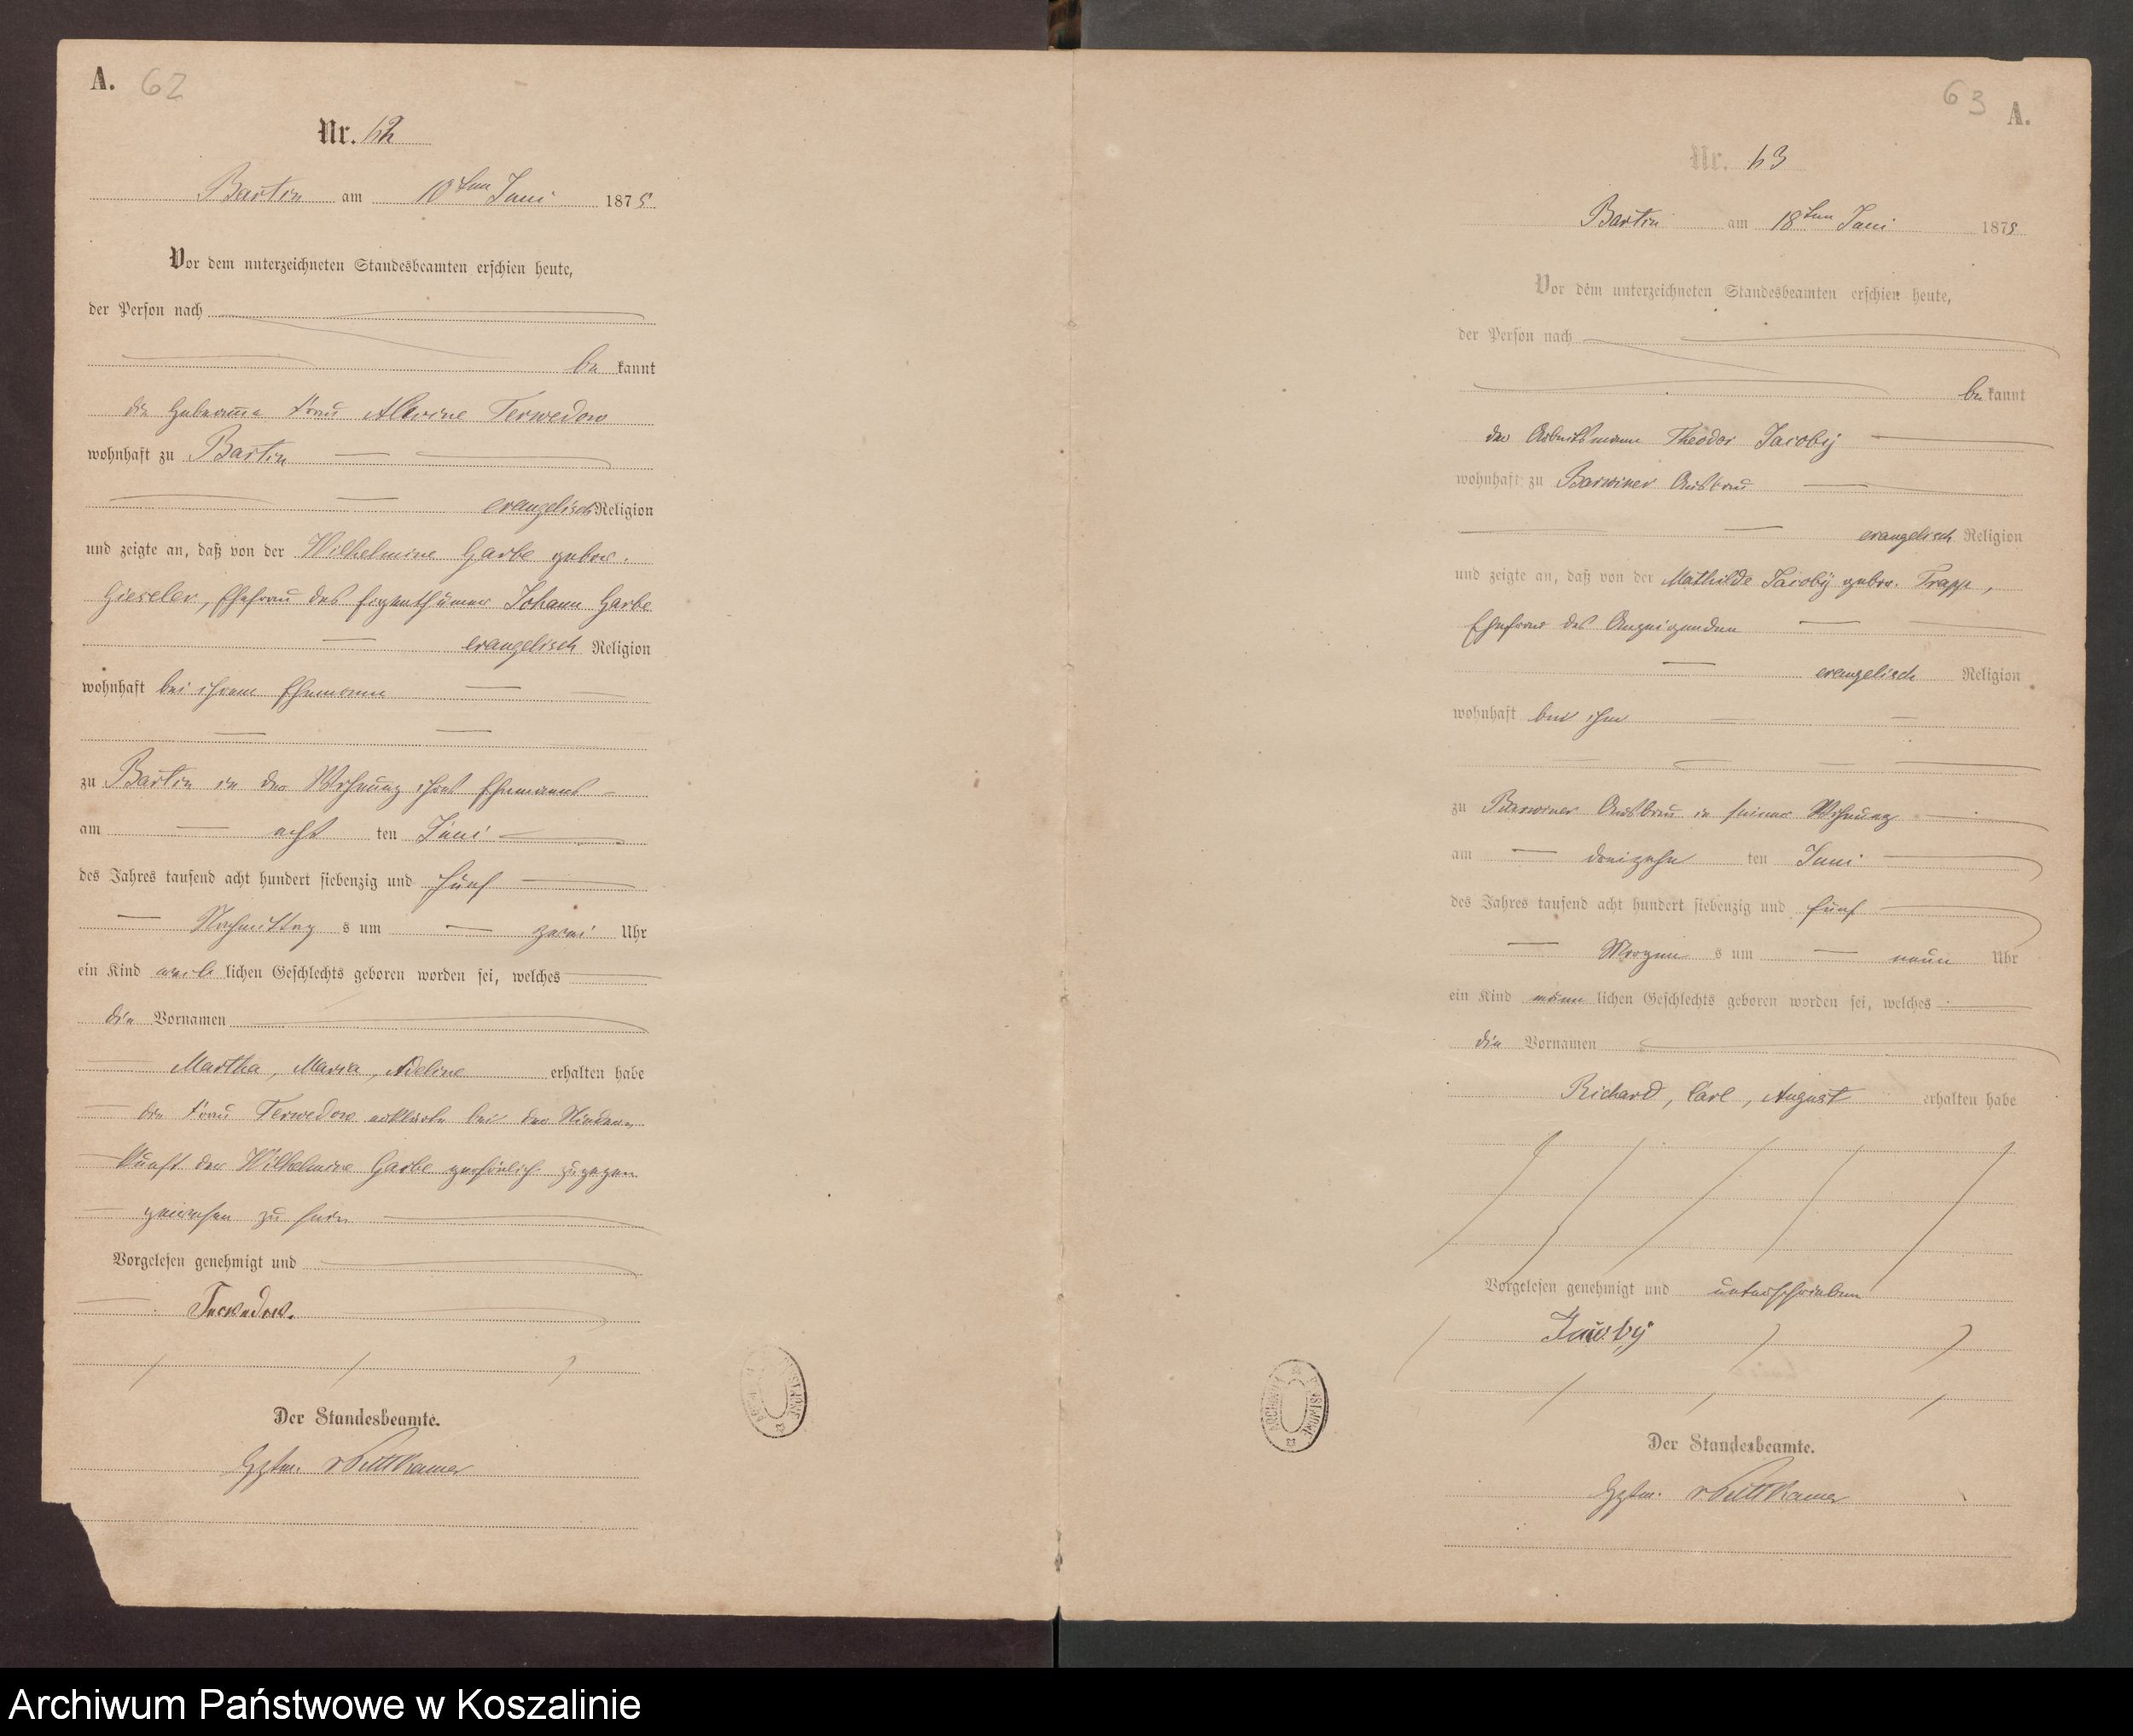 A. 62
Nr. 62
Bartin am 10ten Juni 1875
Vor dem unterzeichneten Standesbeamten erschien heute,
der Person nach
be kannt
die Hebamme Frau Alwine Terwedow
wohnhaft zu Bartin
evangelisch Religion
und zeigte an, daß von der Wilhelmine Garbe gebor.
Gieseler, Ehefrau des Eigenthümer Johann Garbe
evangelisch Religion
wohnhaft bei ihrem Ehemann
zu Bartin in der Wohnung ihres Ehemannes
am acht ten Juni
des Jahres tausend acht hundert siebenzig und fünf
Nachmittag s um zwei Uhr
ein Kind weib lichen Geschlechts geboren worden sei, welches
die Vornamen
Martha, Maria, Adeline erhalten habe
die Frau Terwedow erklärte bei der Nieder=
kunft der Wilhelmine Garbe persönlich zugegen
gewesen zu sein
Vorgelesen genehmigt und
Terwedow.
Der Standesbeamte.
v Puttkamer
63 A.
Nr. 63
Bartin am 18ten Juni 1875
Vor dem unterzeichneten Standesbeamten erschien heute,
der Person nach
be kannt
der Arbeitsmann Theodor Jacoby
wohnhaft zu Barwiner Ausbau
evangelisch Religion
und zeigte an, daß von der Mathilde Jacoby gebor. Trapp,
Ehefrau des Anzeigenden
evangelisch Religion
wohnhaft bei ihm
zu Barwiner Ausbau in seiner Wohnung
am dreizehn ten Juni
des Jahres tausend acht hundert siebenzig und fünf
Morgen s um neun Uhr
ein Kind männ lichen Geschlechts geboren worden sei, welches
die Vornamen
Richard, Carl, August erhalten habe
Vorgelesen genehmigt und unterschrieben
Jacoby
Der Standesbeamte.
v Puttkamer
Archiwum Państwowe w Koszalinie